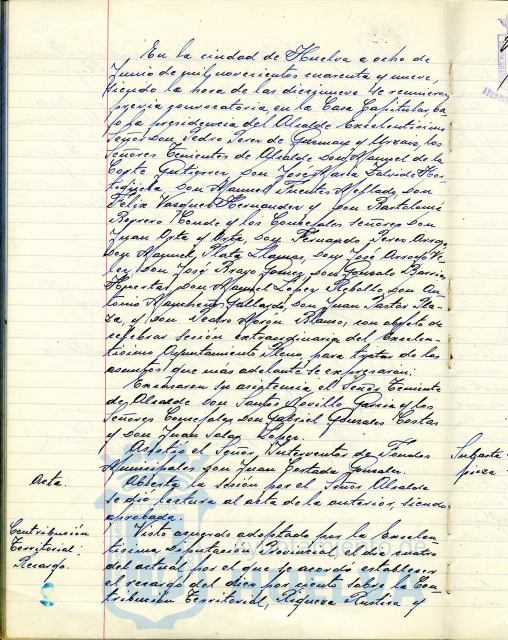 En la ciudad de Huelva a ocho de
Junio de mil novecientos cuarenta y nueve,
siendo la hora de las diecinueve se reunieron
previa convocatoria, en la Casa Capitular, ba-
jo la presidencia del Alcalde Excelentísimo
Señor Don Pedro Perez de Guzman y Urzaiz, los
Señores Tenientes de Alcalde Don Manuel de la
Corte Gutierrez, Don José Maria Salvide Hor-
Don Manuel Fuentes Mellado, Don
Felix Vazquez Hernandez y Don Bartolomé
Borrero Conde y los Concejales Señores Don
Juan Orta y Orta, Don Fernando Perez Arroyo,
Don Manuel Plata Llamas, Don José Arroyo Ve-
lez, Don José Brayo Gomez, Don Gonzalo Barrio
Don Manuel Lopez Rebollo, Don An-
tonio Mancheño Gallardo, Don Juan Pastor Pla-
za, y Don Pedro Morón Blanco, con objeto de
celebrar sesión extraordinaria del Excelen-
tísimo Ayuntamiento Pleno, para tratar de los
asuntos que más adelante se expresarán:
Excusaron su asistencia el Señor Teniente
de Alcalde Don Santos Novillo Garcia y los
Señores Concejales Don Gabriel Gonzalez Costas
y Don Juan Salas Lopez.
Asistió el Señor Interventor de Fondos
Municipales Don Juan Tortada Gonzalez.
Acta.
Abierta la sesión por el Señor Alcalde
se dió lectura al acta de la anterior, siendo
aprobada.
Contribución
Territorial:
Recargo.
Visto acuerdo adoptado por la Excelen-
tísima Diputación Provincial el día cuatro
del actual por el que se acordó establecer
el recargo del diez por ciento sobre la Con-
tribución Territorial, Riqueza Rústica y
Subasta
pieza
Ayuntamiento de
HUELVA